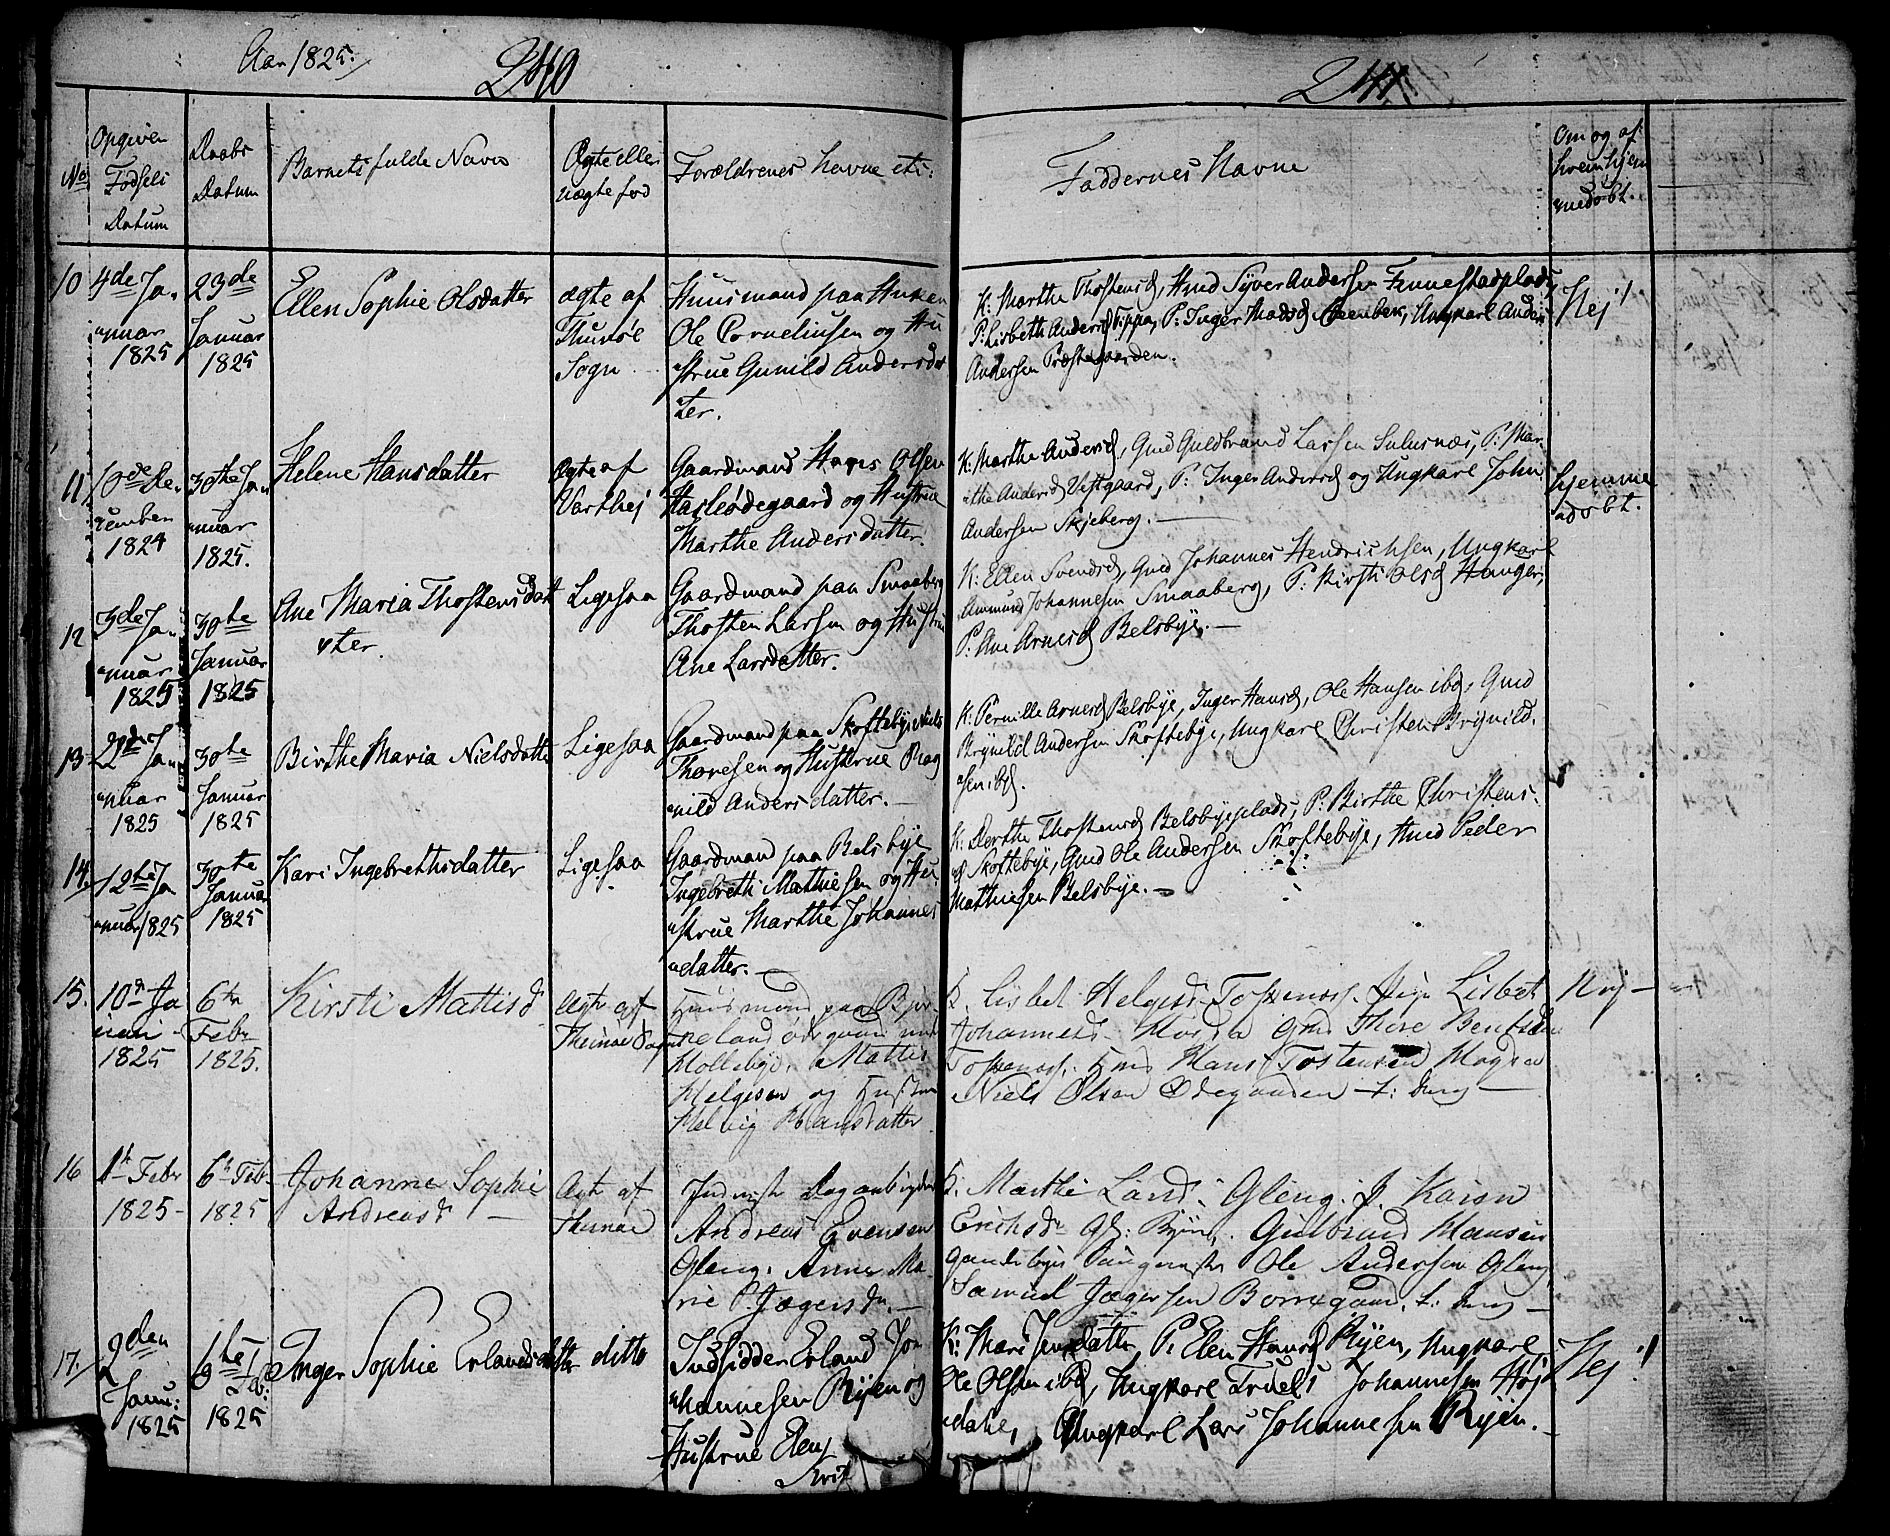 Aar 1825.
240
241
No
Opgiven
Fødsels
Datum
Daabs
Datum
Barnets fulde Navn
Ægte eller
uægte fød
Forældrenes Navne etc:
Faddernes Navne
Om og af
hvem hjem
medøbt.
10
4de Ja
nuar
1825
23de
Januar
1825
Ellen Sophie Olsdatter
ægte af
Thunøe
Sogn
Huusmand paa
Ole Corneliusen og Hu
strue Gunild Andersdat
ter.
K: Marthe Thostensd, Hmd Syver Andersen Finnestadplads,
P: Lisbeth Andersd Tippa, P: Inger Madsd, Ungkarl Anders
Andersen Præstegaarden.
Nej!
11
10de De
cember
1824
30the Jan
nuar
1825.
Helene Hansdatter
Ægte af
Varthej
Gaardmand Hans Olsen
Hasleødegaard og Hustrue
Marthe Andersdatter.
K: Marthe Andersd, Gmd Guldbrand Larsen, P: Mar
the Andersd Vestgaard, P: Inger Andersd og Ungkarl John
Andersen Skjeberg.
hjemme
døbt.
12
3de Ja
nuar
1825
30te
Januar
1825
Ane Maria Thostensdat
ter.
Ligesaa
Gaardmand paa Smaaberg
Thosten Larsen og Hustrue
Ane Larsdatter.
K: Ellen Svendsd, Gmd Johannes Hendrichsen, Ungkarl
Ammund Johannesen Smaaberg, P: Kirsti Olsd Hauger,
P: Ane Arnesd Belsbye.
13
22de Ja
nuar
1825
30te
Januar
1825
Birthe Maria Nielsdatter
Ligesaa
Gaardmand paa Skoftebye Niels
Thoresen og Hustrue Rag
nild Andersdatter.
K: Pernille Arnesd Belsbye, Inger Hansd, Ole Hansen ibd, Gmd
Brynild Andersen Skoftebye, Ungkarl Christen Brynild
sen ibd.
14
12te Ja
nuar 1825
30te
Januar
1825
Kari Ingebrethsdatter
Ligesaa
Gaardmand paa Belsbye
Ingebreth Mathiesen og Hu
strue Marthe Johannes
datter.
K: Derthe Thostensd Belsbyeplads, P: Birthe Christens
d Skoftebye, Gmd Ole Andersen Skoftebye, Hmd Peder
Mathiesen Belsbye.
15.
10de Ja
nuari
1825
6te
Febr
1825.
Kirsti Mattisd
Ægte af
Thunøe Sogn
Huusmand paa Bjør
neland ødegaard under
Mollebye, Mattis
Helgesen og Hustrue
Helvig Hansdatter
K. Lisbet Helgesd Pige Lisbet
Johannesd Gmd Thore Bentsen
Hmd Hans Tostensen
Niels Olsen Ødegaarden
Nej
16
1te Febr
1825
6te Feb
1825
Johanne Sophie
Andreasd
Ægte af
Thunøe
Inderste Dagarbejder
Andreas Evensen
Gleng. Anne Ma
rie P. Jægersd.
K. Marthe Lands. Gleng. P. Karen
Erichsd Gulbrand Hansen
Ole Andersen Gleng
Samuel Jægersen Borregaard.
17.
2den
Janu:
1825
6te
Feb:
1825
Inger Sophie Erlandsdatter
ditto
Indsidder Erland Jo
hannesen Ryen og
Hustrue Elen
K: Mari Jensdatter, P: Elen Hansd Ryen, Ungkarl
Ole Olsen ibd, Ungkarl Truels Johannesen Høj
dahl, Ungkarl Lars Johannesen Ryen.
Nej!